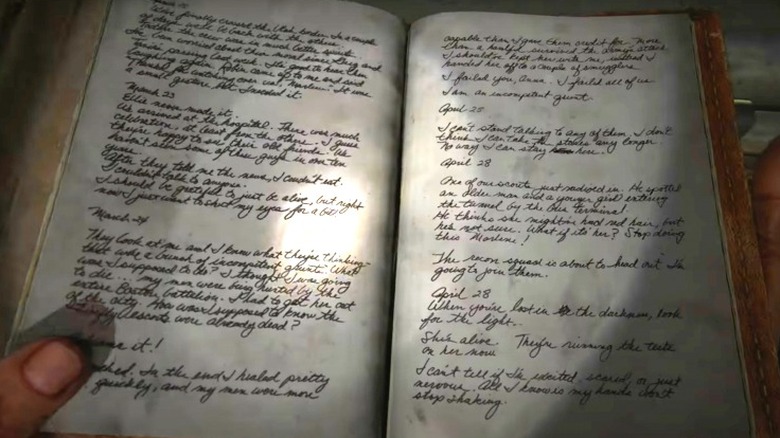 We finally crossed the Utah border. In a couple
of days we'll be back with the others.
the crew was in much better spirits
laughing again.
a small gesture but I needed it.
March 23
Ellie never made it.
We arrived at the hospital. There was much
celebration, at least from the others. I guess
they're happy to see their old friends. We
haven't seen some of these guys in over ten
years.
After they told me the news, I couldn't eat.
I couldn't talk to anyone.
I should be grateful to just be alive, but right
now I just want to shut my eyes for a bit.
March 24
They look at me and I know what they're thinking -
that were a bunch of incompetent grunts. What
was I supposed to do? I thought I was going
to die... my men were being hunted by the
entire Boston battalion. I had to get her out
of the city. How was I supposed to know the
escorts were already dead?
it!
In the end I healed pretty
quickly, and my men were more
capable than I gave them credit for. More
than a handful survived the army's attack.
I should've kept her with me, instead I
handed her off to a couple of smugglers.
I failed you, Anna. I failed all of us.
I am an incompetent grunt.
April 25
I can't stand talking to any of them. I don't
think I can take the stares any longer.
No way I can stay here.
April 28
One of our scouts just radioed in. He spotted
an older man and a younger girl entering
the tunnel by the bus terminal.
He thinks she might've had red hair, but
he's not sure. What if it's her? Stop doing
this Marlene!
The recon squad is about to head out. I'm
going to join them.
April 28
When you're lost in the darkness, look
for the light..
She's alive. They're running the tests
on her now.
I can't tell if I'm excited, scared, or just
nervous. All I know is my hands don't
stop shaking.